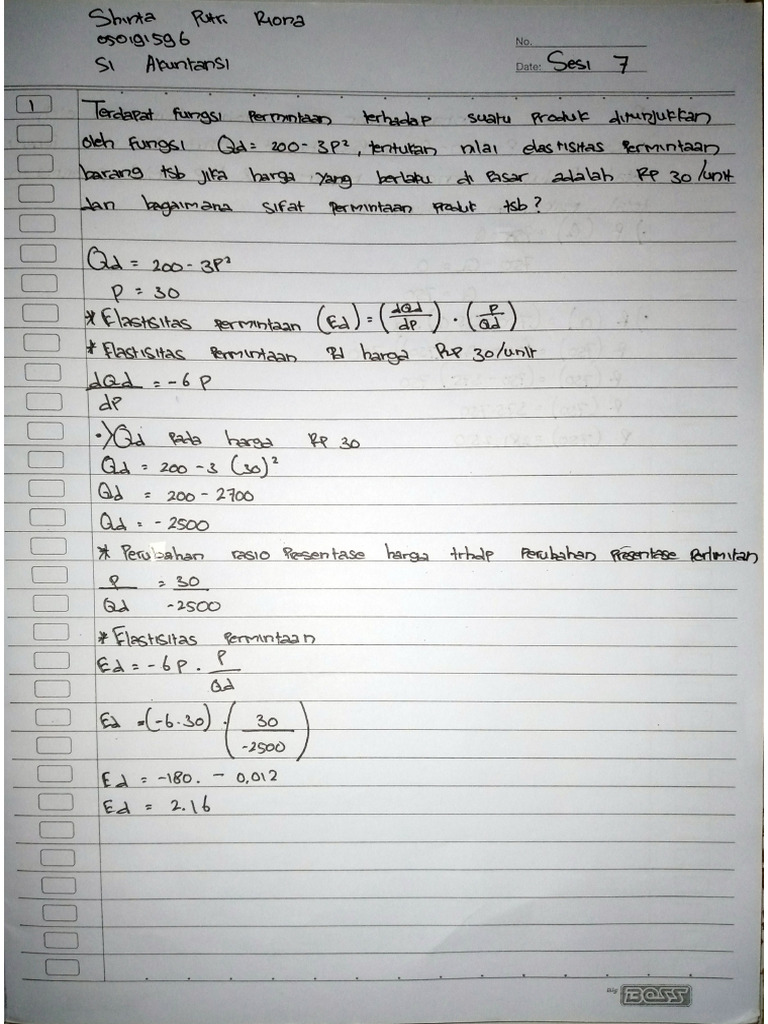 Shinta Putri Riona
050191596
S1 Akuntansi
No.
Date: Sesi 7
1 Terdapat fungsi permintaan terhadap suatu produk ditunjukkan
oleh fungsi Qd = 200 - 3P², tentukan nilai elastisitas permintaan
barang tsb jika harga yang berlaku di pasar adalah RP 30/unit
dan bagaimana sifat permintaan produk tsb?
Qd = 200 - 3P²
P = 30
* Elastisitas permintaan (Ed) = (dQd/dP) · (P/Qd)
* Elastisitas permintaan Pd harga Rp 30/unit
dQd/dP = -6 P
·) Qd pada harga Rp 30
Qd = 200 - 3 (30)²
Qd = 200 - 2700
Qd = - 2500
* Perubahan rasio Presentase harga trhdp Perubahan Presentase
P/Qd = 30/-2500
* Elastisitas Permintaan
Ed = -6P . P/Qd
Ed = (-6.30) . (30/-2500)
Ed = -180. - 0,012
Ed = 2.16
BOSS